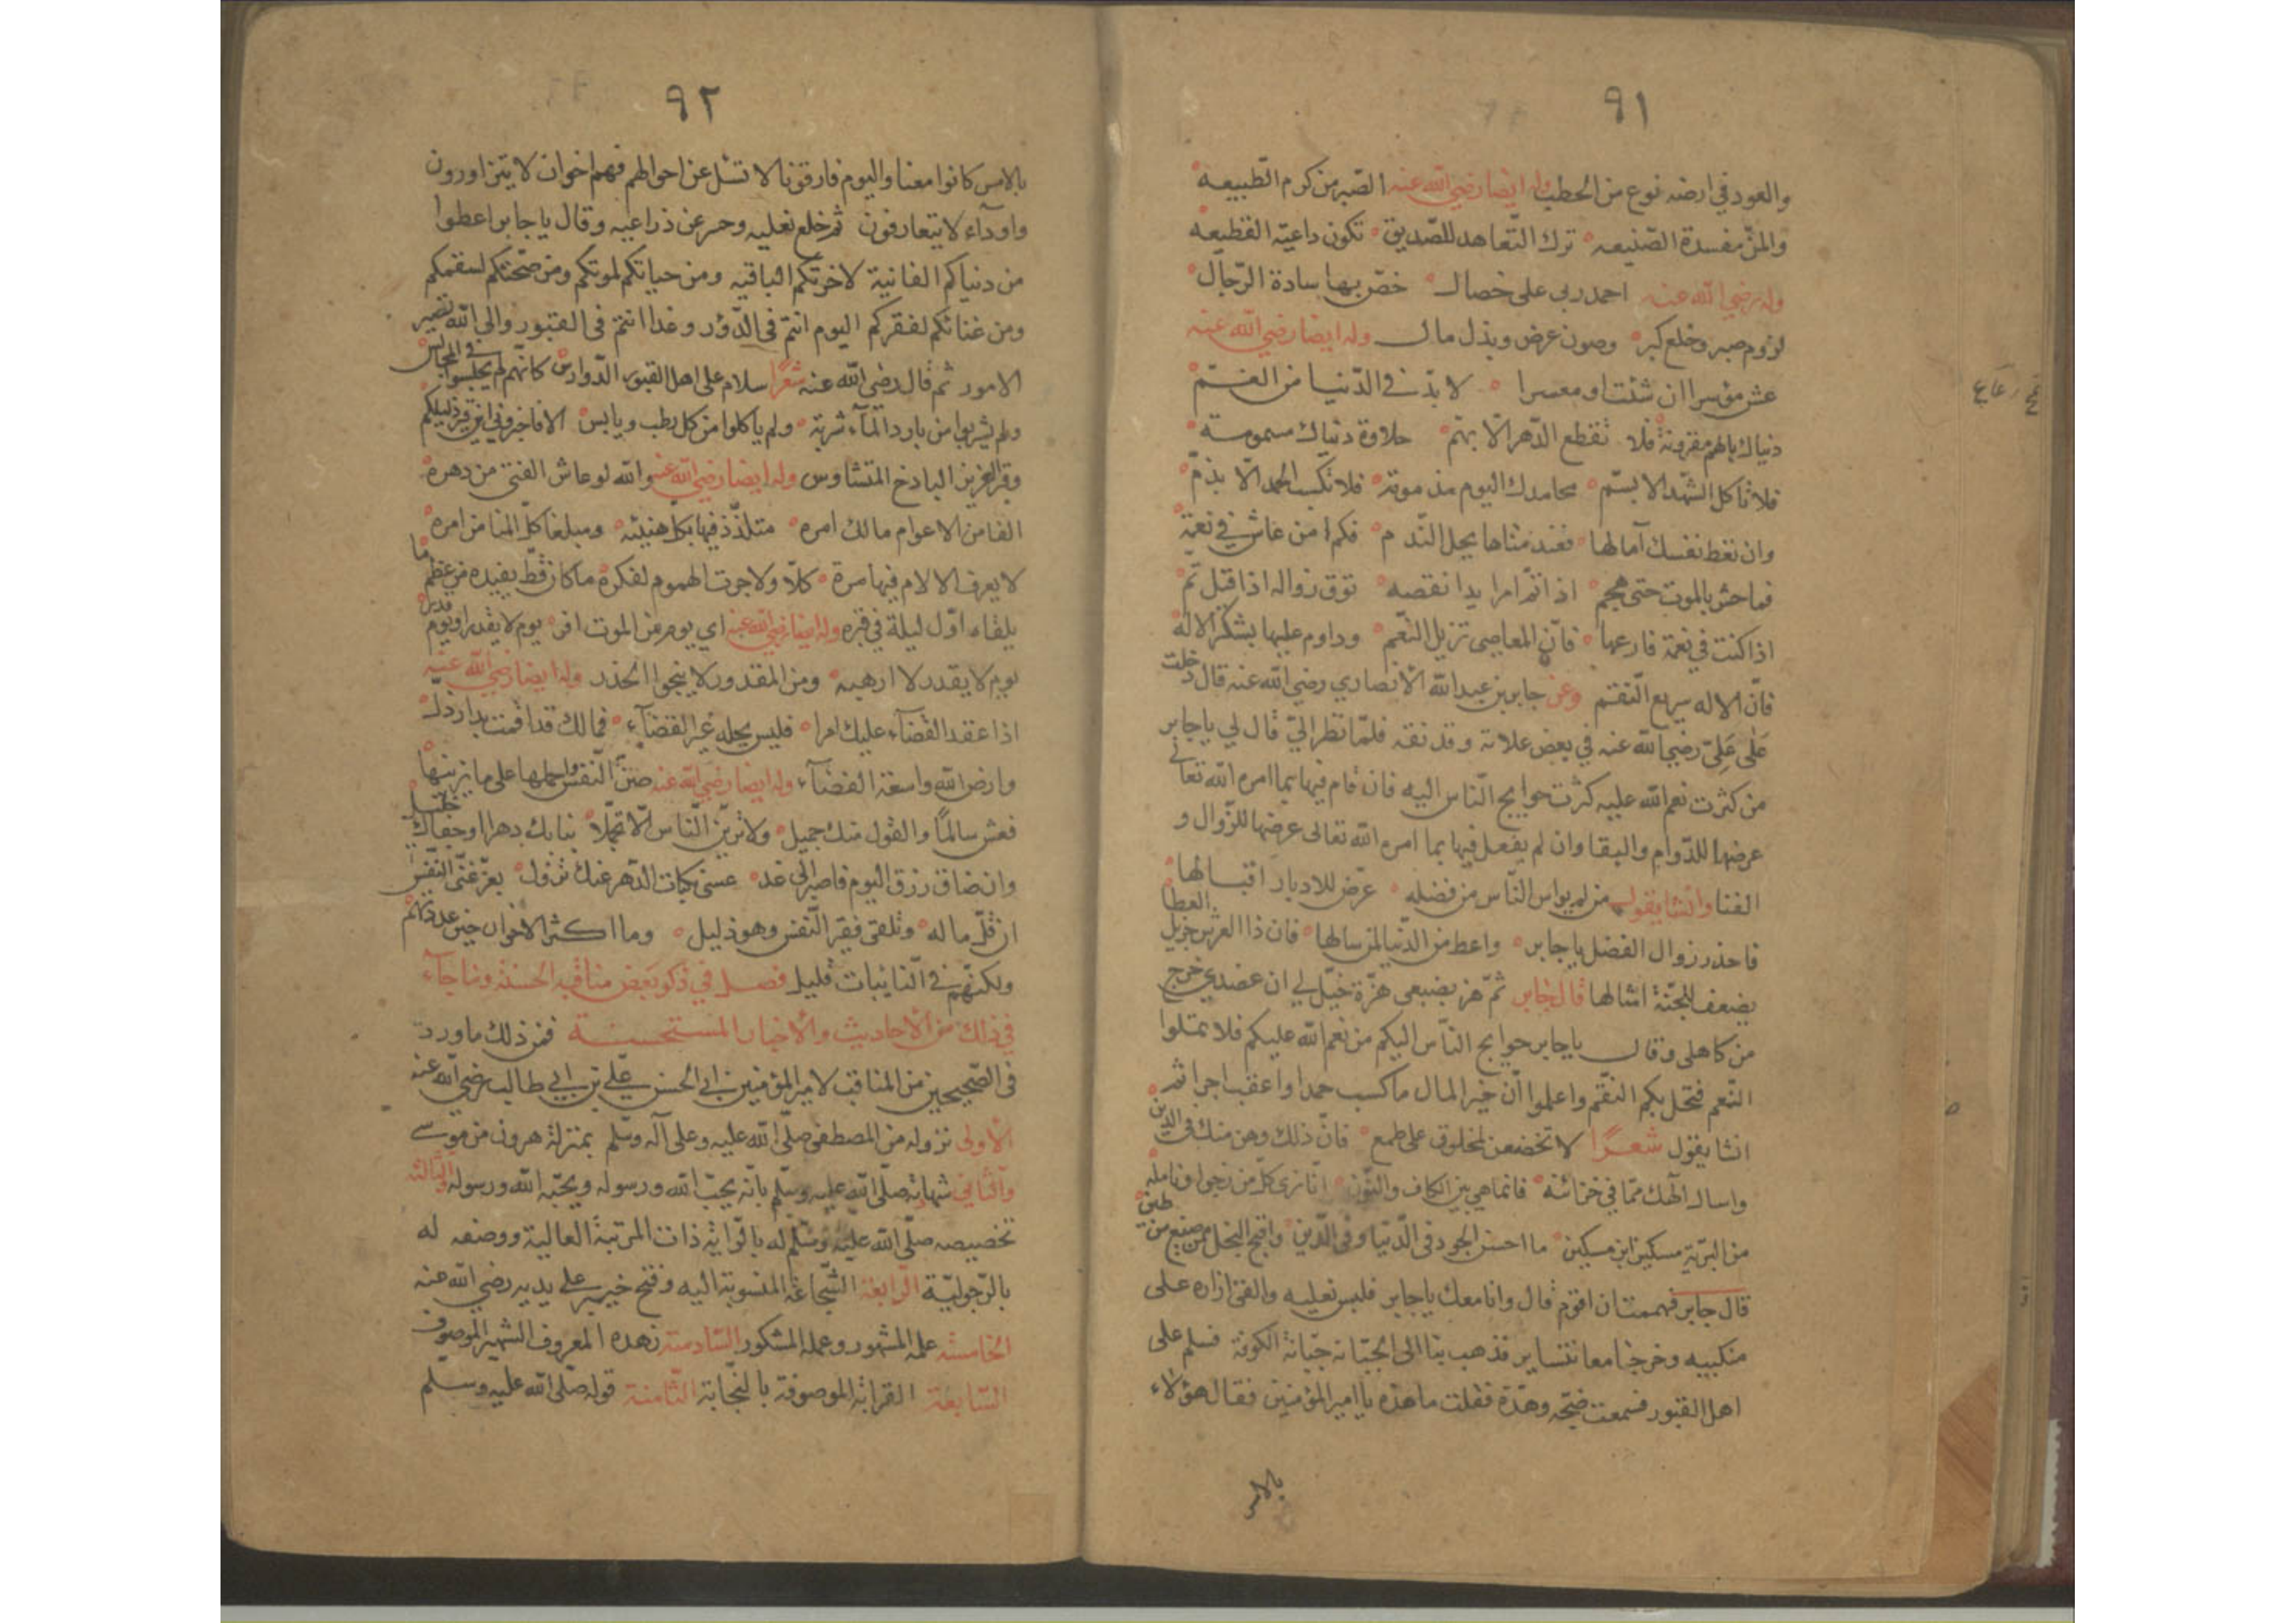 ٩١
والعود في ارضه نوع من الحطب وله ايضا رضي الله عنه الصبر من كرم الطبيعه
والمن مفسدة الصنيعه ترك التعاهد للصديق تكون داعية القطيعه
وله رضي الله عنه احمد ربي على خصال خص بها سادة الرجال
لزوم صبر وخلع كبر وصون عرض وبذل مال وله ايضا رضي الله عنه
عش موسرا ان شئت او معسرا لا بد في الدنيا من الغم
دنياك بالهم مقرونة فلا تقطع الدهر الا بهم حلاوة دنياك مسمومة
فلا تاكل الشهد الا بسم محامدك اليوم مذمومة فلا تكسب الحمد الا بذم
وان تعط نفسك آمالها فعند مناها يحل الندم فكم امن عاش في نعمة
فما حس بالموت حتى هجم اذا تم امر بدا نقصه توق زواله اذا قيل تم
اذا كنت في نعمة فارعها فان المعاصي تزيل النعم وداوم عليها بشكر الاله
فان الاله سريع النقم وعن جابر بن عبد الله الانصاري رضي الله عنه قال دخلت
على علي رضي الله عنه في بعض علاته وقد نقه فلما نظر الي قال لي يا جابر
من كثرت نعم الله عليه كثرت حوايج الناس اليه فان قام فيها بما امره الله تعالى
عرضها للدوام والبقا وان لم يفعل فيها بما امره الله تعالى عرضها للزوال و
الفنا وانشا يقول من لم يواس الناس من فضله عرض للادبار اقبالها
فاحذر زوال الفضل يا جابر واعط من الدنيا لمن سالها فان ذا العرش جزيل العطا
يضعف للجنة امثالها قال جابر ثم هز بضبعي هزة خيل لي ان عضدي خرج
من كاهلي وقال يا جابر حوايج الناس اليكم من نعم الله عليكم فلا تملوا
النعم فتحل بكم النقم واعلموا ان خير المال ما كسب حمدا واعقب اجرا ثم
انشا يقول شعرا لا تخضعن لمخلوق على طمع فان ذلك وهن منك في الدين
واسال الهك مما في خزائنه فانما هي بين الكاف والنون انا نرى كل من نرجوا ونامله
من البرية مسكين ابن مسكين ما احسن الجود في الدنيا وفي الدين واقبح البخل ممن صنع من طين
قال جابر فهممت ان اقوم قال وانا معك يا جابر فلبس نعليه والقى ازاره على
منكبيه وخرجنا معا نتساير فذهب بنا الى الجبانة جبانة الكوفة فسلم على
اهل القبور فسمعت ضجة وهدة فقلت ما هذه يا امير المؤمنين فقال هؤلاء
بالامس
٩٢
بالامس كانوا معنا واليوم فارقونا لا تسئل عن احوالهم فهم اخوان لا يتزاورون
واودآء لا يتعارفون ثم خلع نعليه وحسر عن ذراعيه وقال يا جابر اعطوا
من دنياكم الفانية لاخرتكم الباقيه ومن حياتكم لموتكم ومن صحتكم لسقمكم
ومن غنائكم لفقركم اليوم انتم في الدور وغدا انتم في القبور والى الله تصير
الامور ثم قال رضي الله عنه شعرا سلام على اهل القبور الدوارس كانهم لم يجلسوا في المجالس
ولم يشربوا من بارد المآء شربة ولم ياكلوا من كل رطب ويابس الا فاخبروني اين قبر ذليلكم
وقبر العزيز الباذخ المتشاوس وله ايضا رضي الله عنه والله لو عاش الفتى من دهره
الفا من الاعوام مالك امره متلذذ فيها بكل هنيئه ومبلغا كل المنا من امره
لا يعرف الالام فيها مرة كلا ولا جرت الهموم لفكره ما كان قط يفيده من عظم ما
يلقاه اول ليلة في قبره وله ايضا رضي الله عنه اي يوم من الموت افر يوم لا يقدر او يوم قدر
يوم لا يقدر لا ارهبه ومن المقدور لا ينجوا الحذر وله ايضا رضي الله عنه
اذا عقد القضآء عليك امرا فليس يحله غير القضآء فمالك قد اقمت بدار ذل
وارض الله واسعة الفضآء وله ايضا رضي الله عنه صن النفس واحملها على ما يزينها
فعش سالما والقول منك جميل ولا ترين الناس الا تجملا نبا بك دهر او جفاك خليل
وان ضاق رزق اليوم فاصبر الى غد عسى نكبات الدهر عنك تزول يعز غني النفس
ان قل ماله وتلقى فقير النفس وهو ذليل وما اكثر الاخوان حين تعدهم
ولكنهم في النايبات قليل فصل في ذكر بعض مناقبه الحسنة وما جآء
في ذلك من الاحاديث والاخبار المستحسنة فمن ذلك ما ورد
في الصحيحين من المناقب لامير المؤمنين ابي الحسن علي بن ابي طالب رضي الله عنه
الاولى نزوله من المصطفى صلى الله عليه وعلى آله وسلم بمنزلة هرون من موسى
والثانى شهادته صلى الله عليه وسلم بانه يحب الله ورسوله ويحبه الله ورسوله والثالثه
تخصيصه صلى الله عليه وسلم له بالراية ذات المرتبة العالية ووصفه له
بالرجولية الرابعة الشجاعة المنسوبة اليه وفتح خيبر على يديه رضي الله عنه
الخامسة علمه المشهور وعمله المشكور السادسة زهده المعروف الشهير الموصوف
السابعة القرابة الموصوفة بالنجابة الثامنة قوله صلى الله عليه وسلم